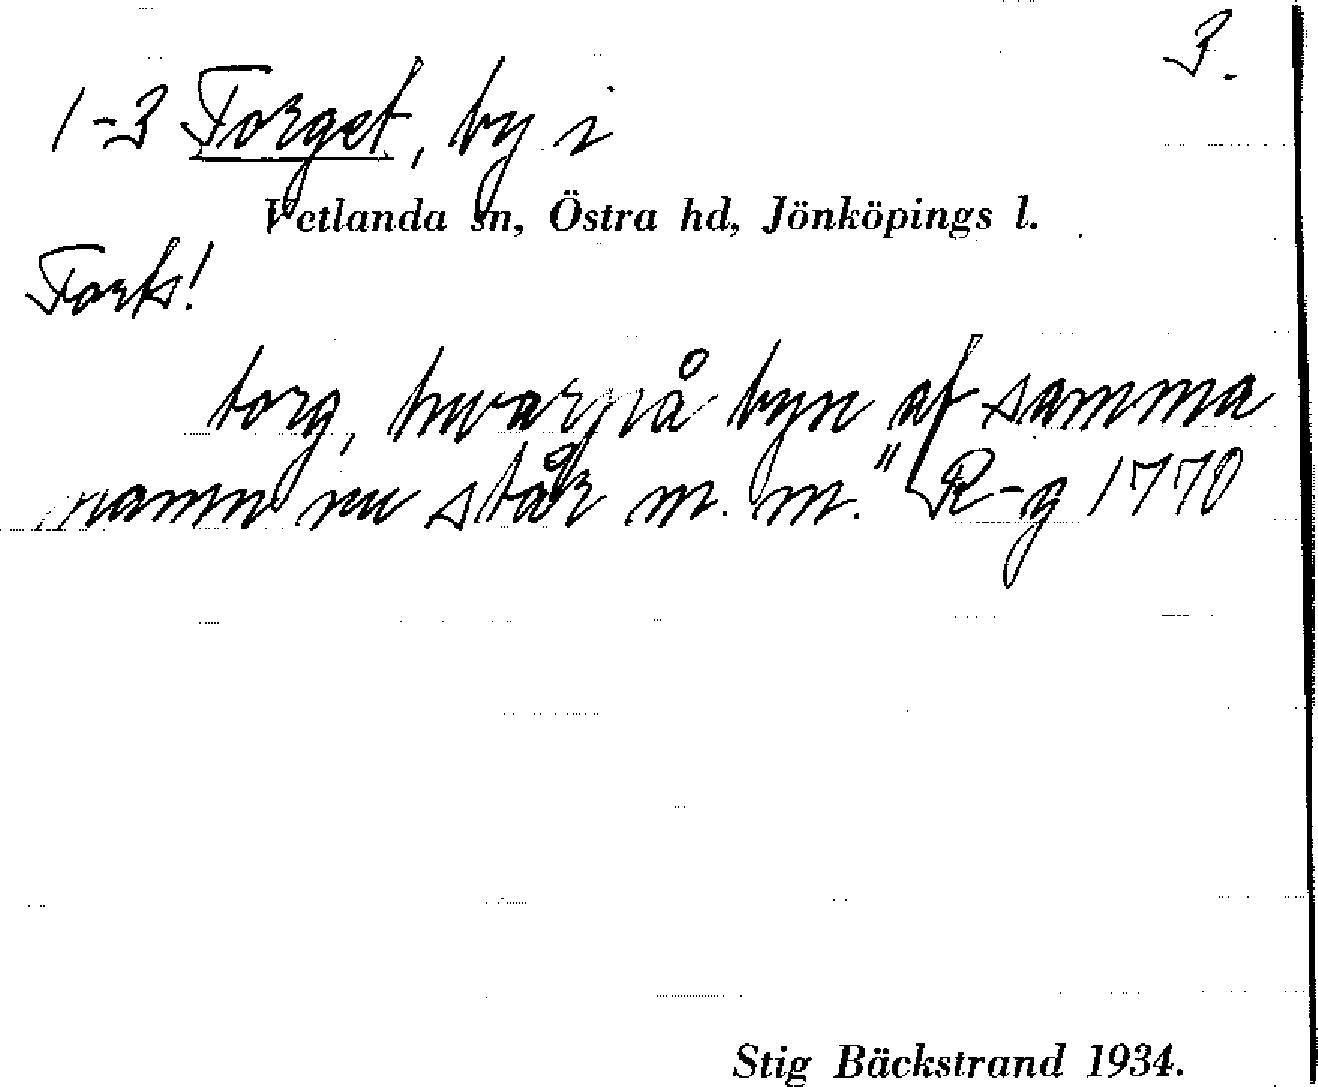 3.
1-3 Torget, by i
Vetlanda sn, Östra hd, Jönköpings l.
Forts!
torg, hwarpå byn af samma
namn nu står m. m." R-g 1770
Stig Bäckstrand 1934.